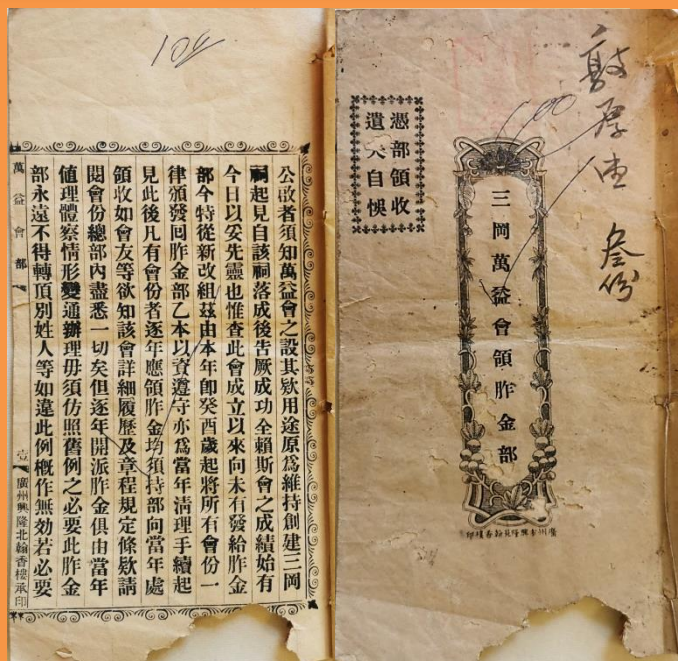 敦厚堂 叁份
100
憑部領收
遺失自悞
三岡萬益會領胙金部
104
公啟者須知萬益會之設其欵用途原爲維持創建三岡
祠起見自該祠落成後告厥成功全賴斯會之成績始有
今日以妥先靈也惟查此會成立以來向未有發給胙金
部今特從新改組茲由本年卽癸酉歲起將所有會份一
律頒發回胙金部乙本以資遵守亦爲當年淸理手續起
見此後凡有會份者逐年應領胙金均須持部向當年處
領收如會友等欲知該會詳細履歷及章程規定條欵請
閱會份總部內盡悉一切矣但逐年開派胙金俱由當年
値理體察情形變通辦理毋須仿照舊例之必要此胙金
部永遠不得轉頂別姓人等如違此例槪作無効若必要
萬益會部
壹
廣州興隆北翰香樓承印